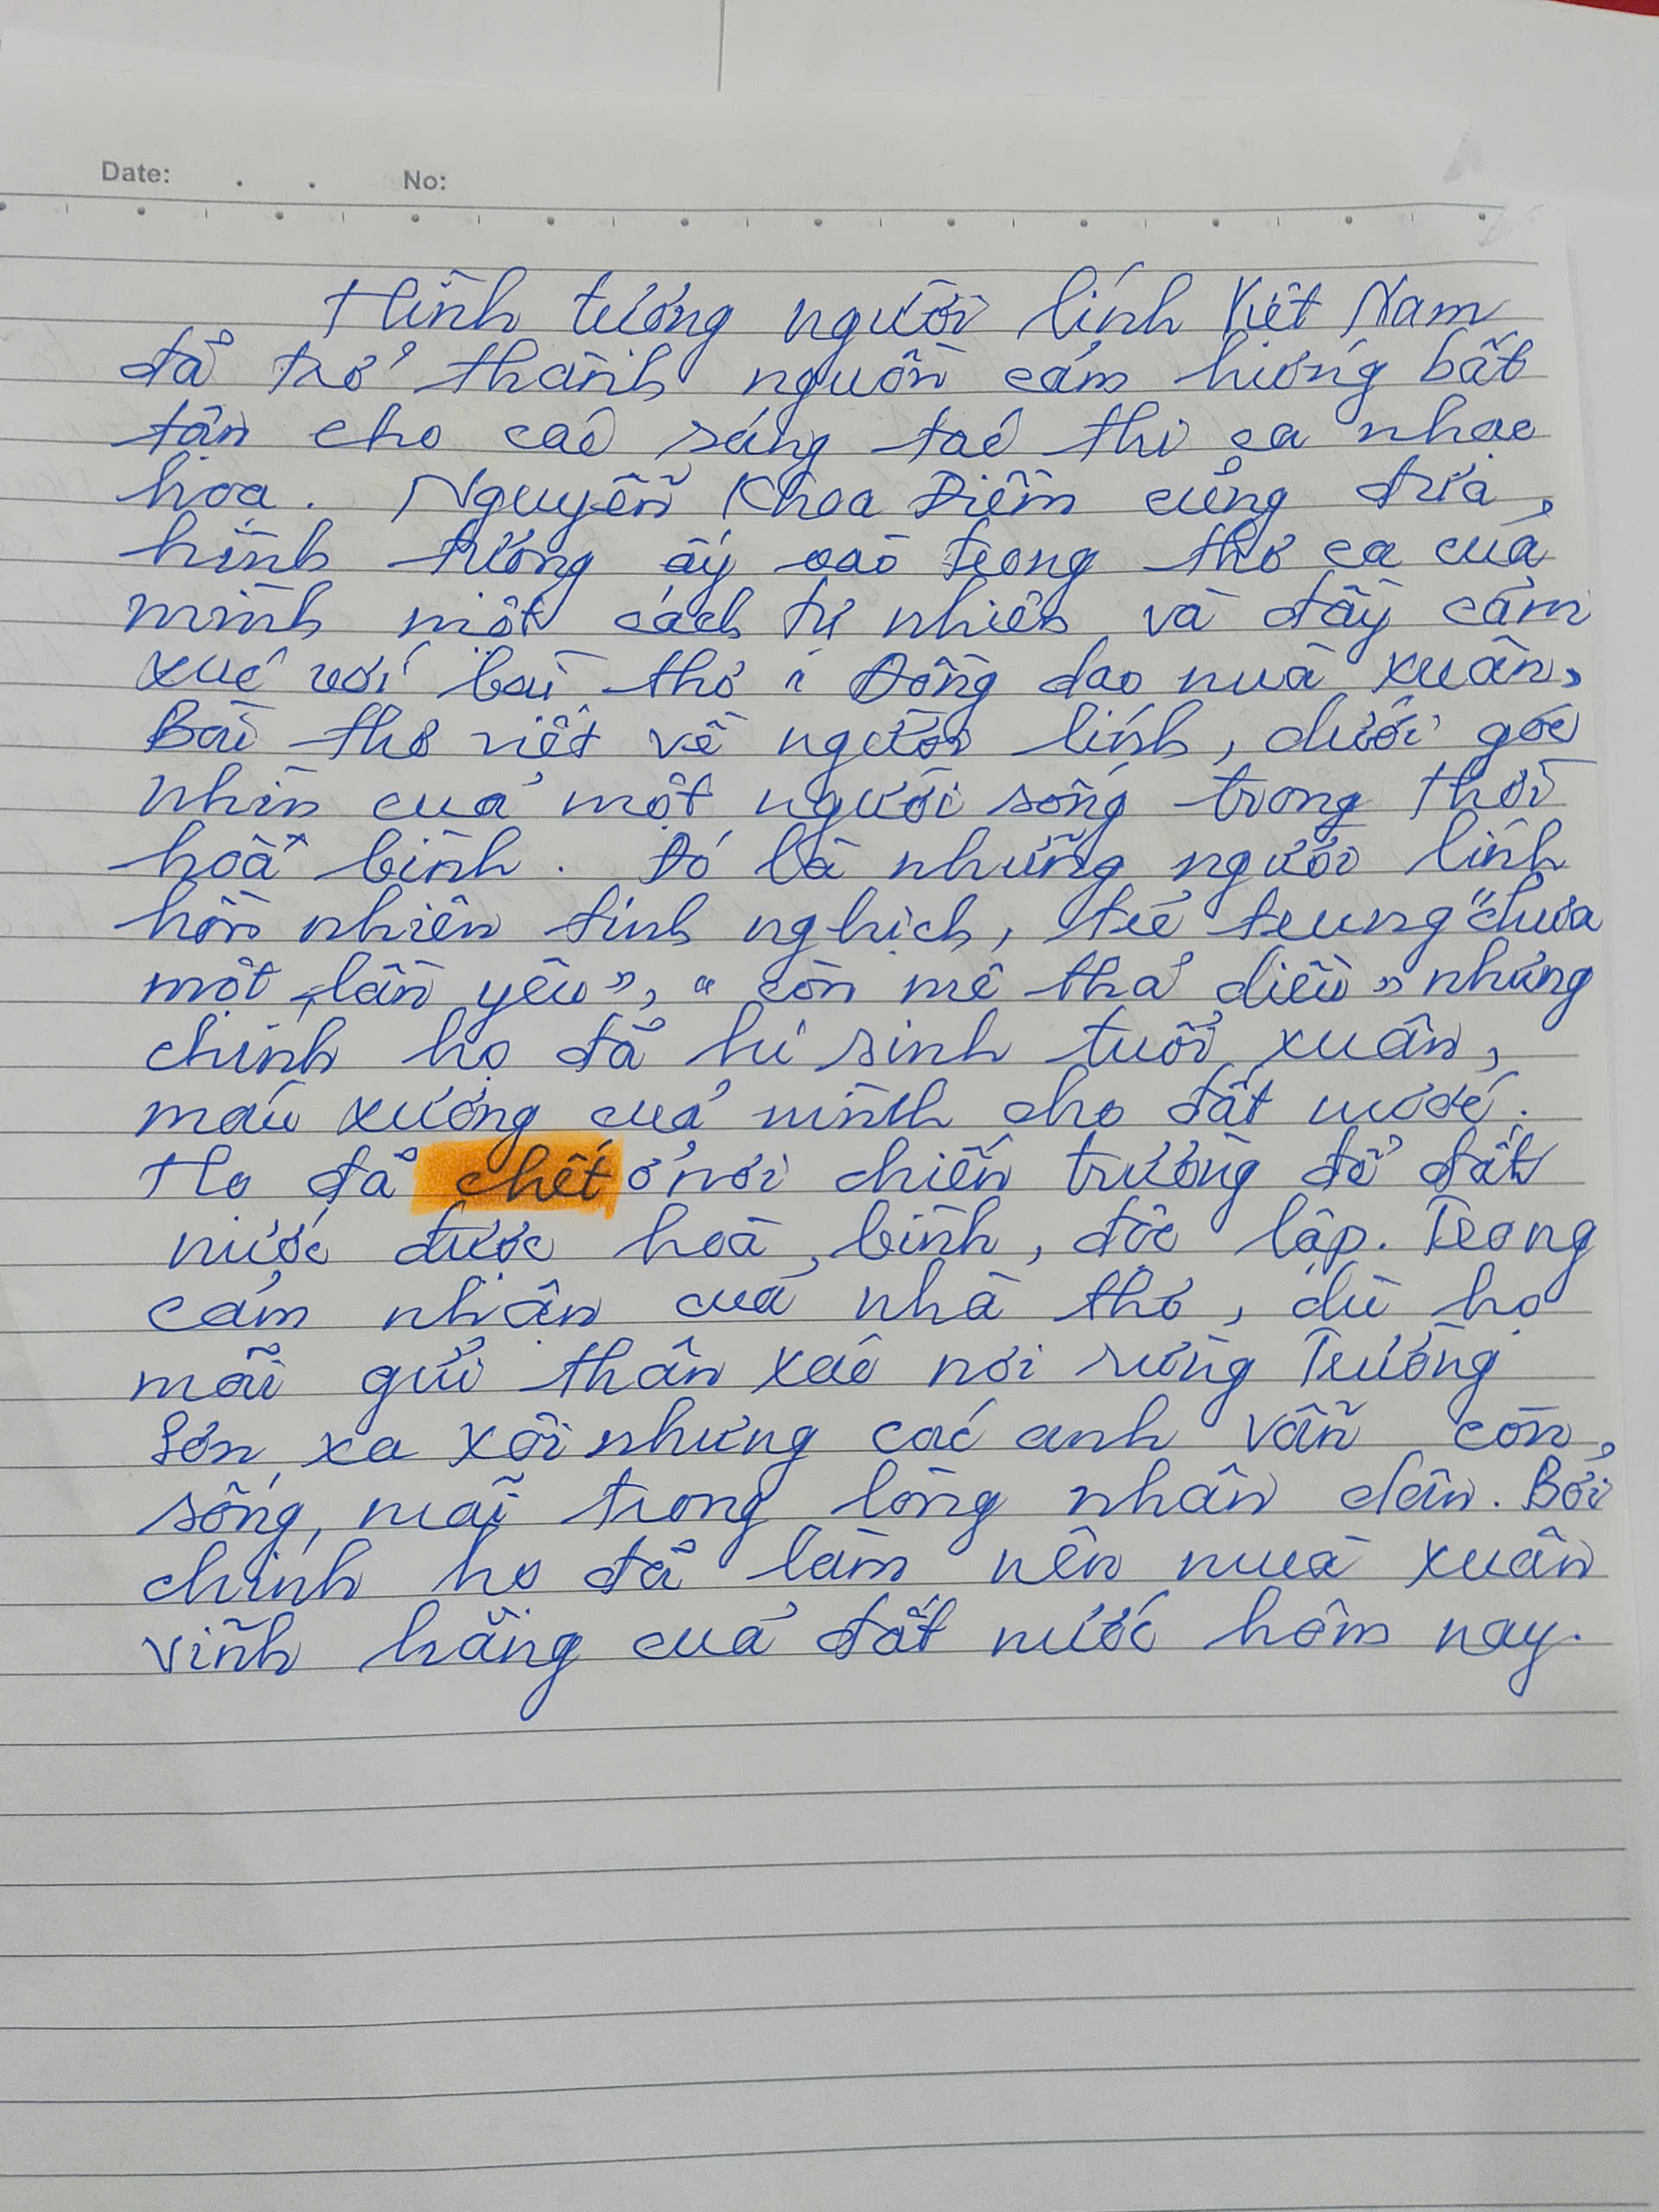 Date: . . No:
Hình tượng người lính Việt Nam
đã trở thành nguồn cảm hứng bất
tận cho các sáng tác thi ca nhạc
hoạ. Nguyễn Khoa Điềm cũng đưa
hình tượng ấy vào trong thơ ca của
mình một cách tự nhiên và đầy cảm
xúc với bài thơ "Đồng dao mùa xuân"
Bài thơ viết về người lính, dưới góc
nhìn của một người sống trong thời
hoà bình. Đó là những người lính
hồn nhiên tinh nghịch, trẻ trung "chưa
một lần yêu", "còn mê thả diều" nhưng
chính họ đã hi sinh tuổi xuân,
máu xương của mình cho đất nước.
Họ đã chết ở nơi chiến trường để đất
nước được hoà bình, độc lập. Trong
cảm nhận của nhà thơ, dù họ
mãi gửi thân xác nơi rừng Trường
Sơn xa xôi nhưng các anh vẫn còn
sống mãi trong lòng nhân dân. Bởi
chính họ đã làm nên mùa xuân
vĩnh hằng của đất nước hôm nay.